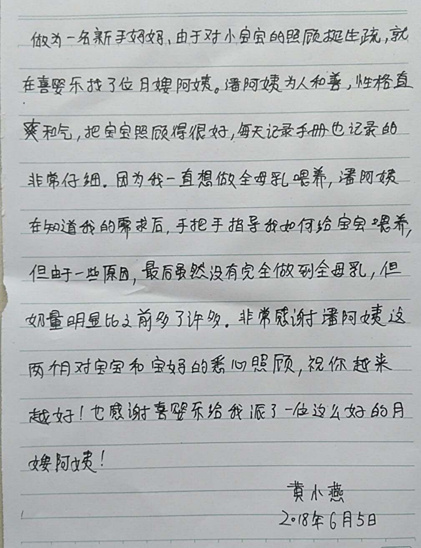 做为一名新手妈妈,由于对小宝宝的照顾挺生疏,就
在喜婴乐找了位月嫂阿姨。潘阿姨为人和善,性格直
爽和气,把宝宝照顾得很好,每天记录手册也记录的
非常仔细。因为我一直想做全母乳喂养,潘阿姨
在知道我的需求后,手把手指导我如何给宝宝喂养,
但由于一些原因,最后虽然没有完全做到全母乳,但
奶量明显比之前多了许多。非常感谢潘阿姨这
两个月对宝宝和宝妈的悉心照顾,祝你越来
越好!也感谢喜婴乐给我派了一位这么好的月
嫂阿姨!
黄小燕
2018年6月5日